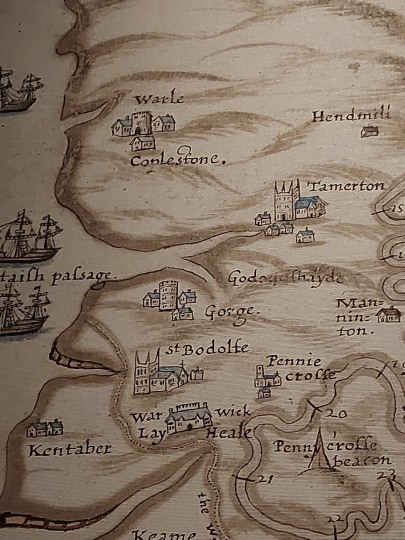 Warle
Hendmill
Conlestone.
Tamerton
15
taish passage.
Gorge.
Man-
nin-
ton.
st Bodolfe
Pennie
crosse
20
War
Wick
Lay
Heale
Kentaber
Penny crosse
beacon
21
23
22
the w
Keame